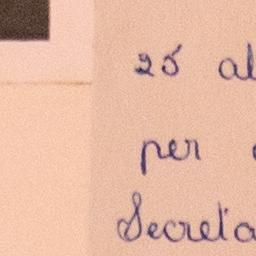 25 al
per
Secreta